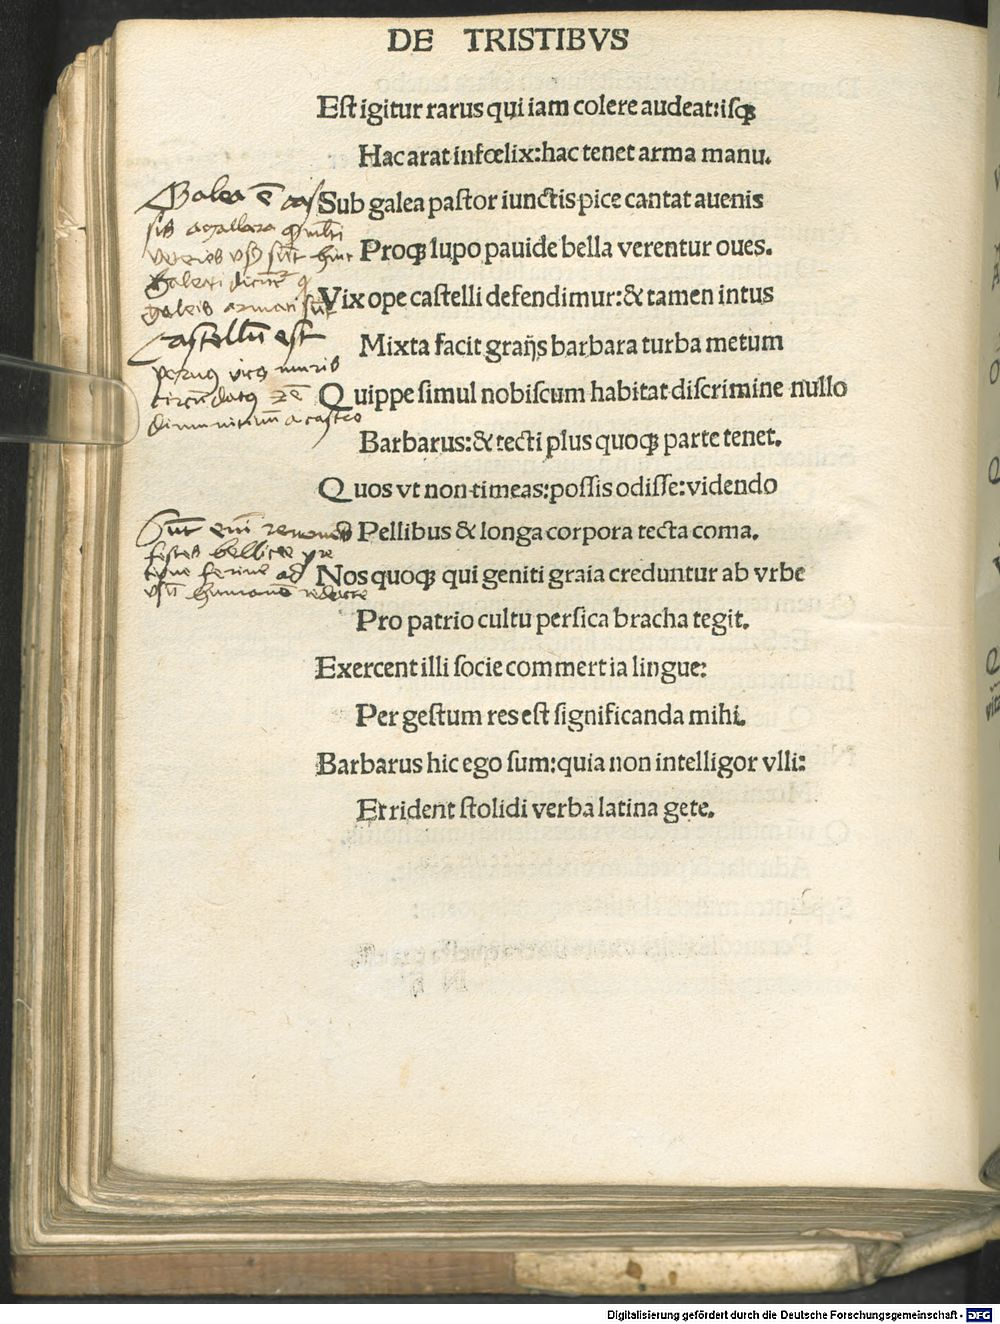 DE TRISTIBVS
Est igitur rarus qui iam colere audeat: isqꝫ
Hac arat infœlix: hac tenet arma manu.
Sub galea pastor iunctis pice cantat auenis
Proqꝫ lupo pauide bella verentur oues.
Vix ope castelli defendimur: & tamen intus
Mixta facit graiis barbara turba metum
Quippe simul nobiscum habitat discrimine nullo
Barbarus: & tecti plus quoqꝫ parte tenet.
Quos vt non timeas: possis odisse: videndo
Pellibus & longa corpora tecta coma.
Nos quoqꝫ qui geniti graia creduntur ab vrbe
Pro patrio cultu persica bracha tegit.
Exercent illi socie commertia lingue:
Per gestum res est significanda mihi.
Barbarus hic ego sum: quia non intelligor vlli:
Et rident stolidi verba latina gete.
Galea ē cas
galeis armati sūt
Castellū est
muris
a castro
bellice
ferine ad
vsū humanū
Digitalisierung gefördert durch die Deutsche Forschungsgemeinschaft - DFG